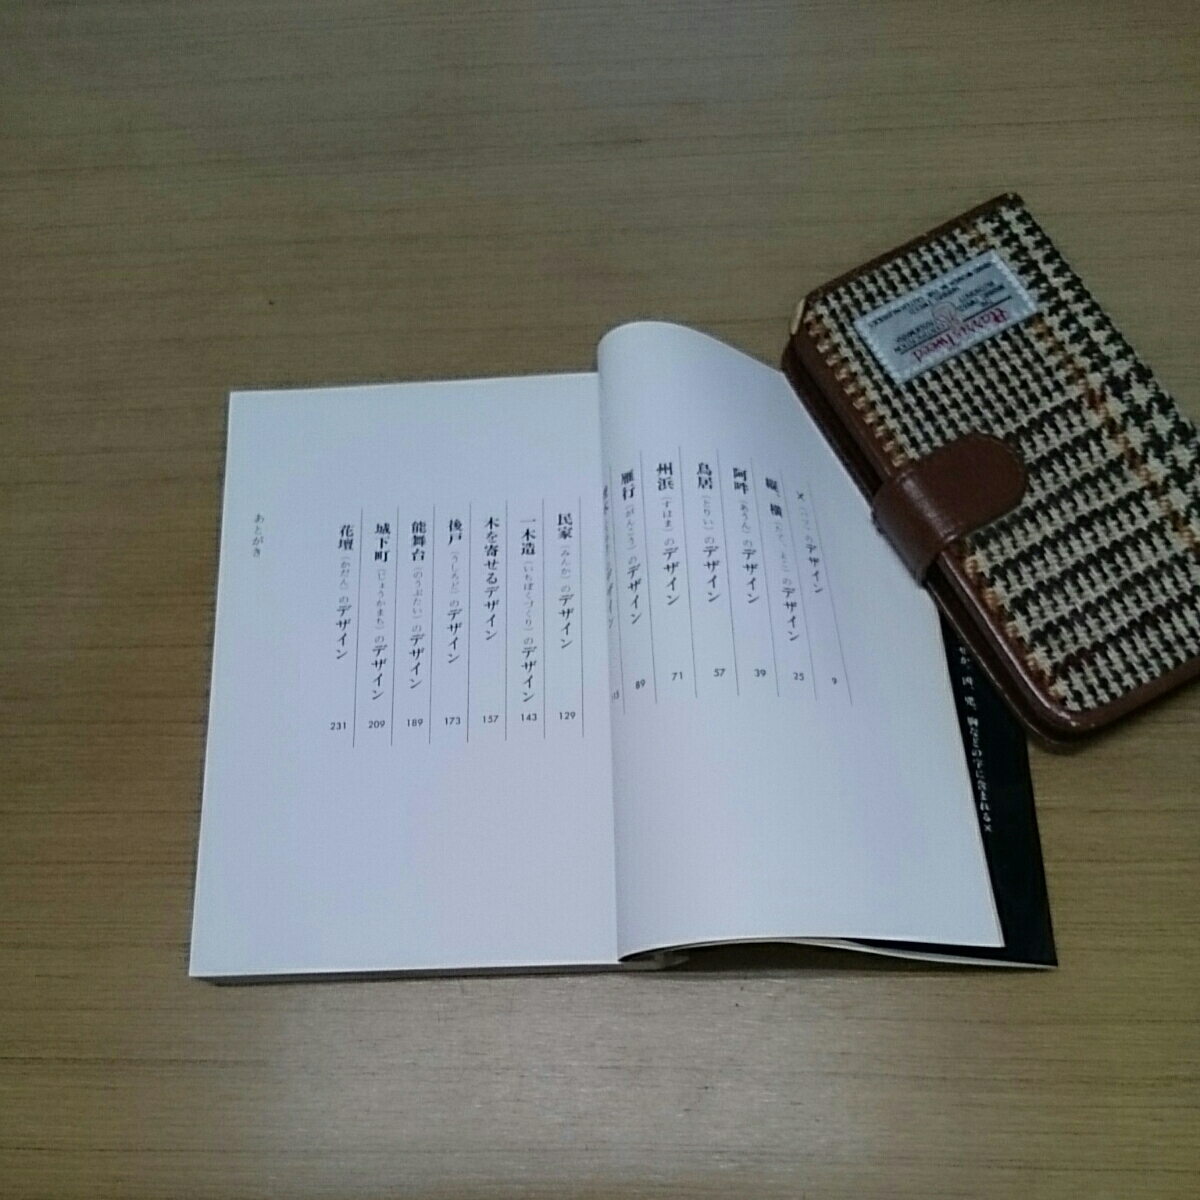 ×（ばつ）のデザイン 9
縦、横（たて、よこ）のデザイン 25
阿吽（あうん）のデザイン 39
鳥居（とりい）のデザイン 57
州浜（すはま）のデザイン 71
雁行（がんこう）のデザイン 89
デザイン
民家（みんか）のデザイン 129
一木造（いちぼくづくり）のデザイン 143
木を寄せるデザイン 157
後戸（うしろど）のデザイン 173
能舞台（のうぶたい）のデザイン 189
城下町（じょうかまち）のデザイン 209
花壇（かだん）のデザイン 231
あとがき
凶、兇、胸などの字に含まれる×
Harris Tweed